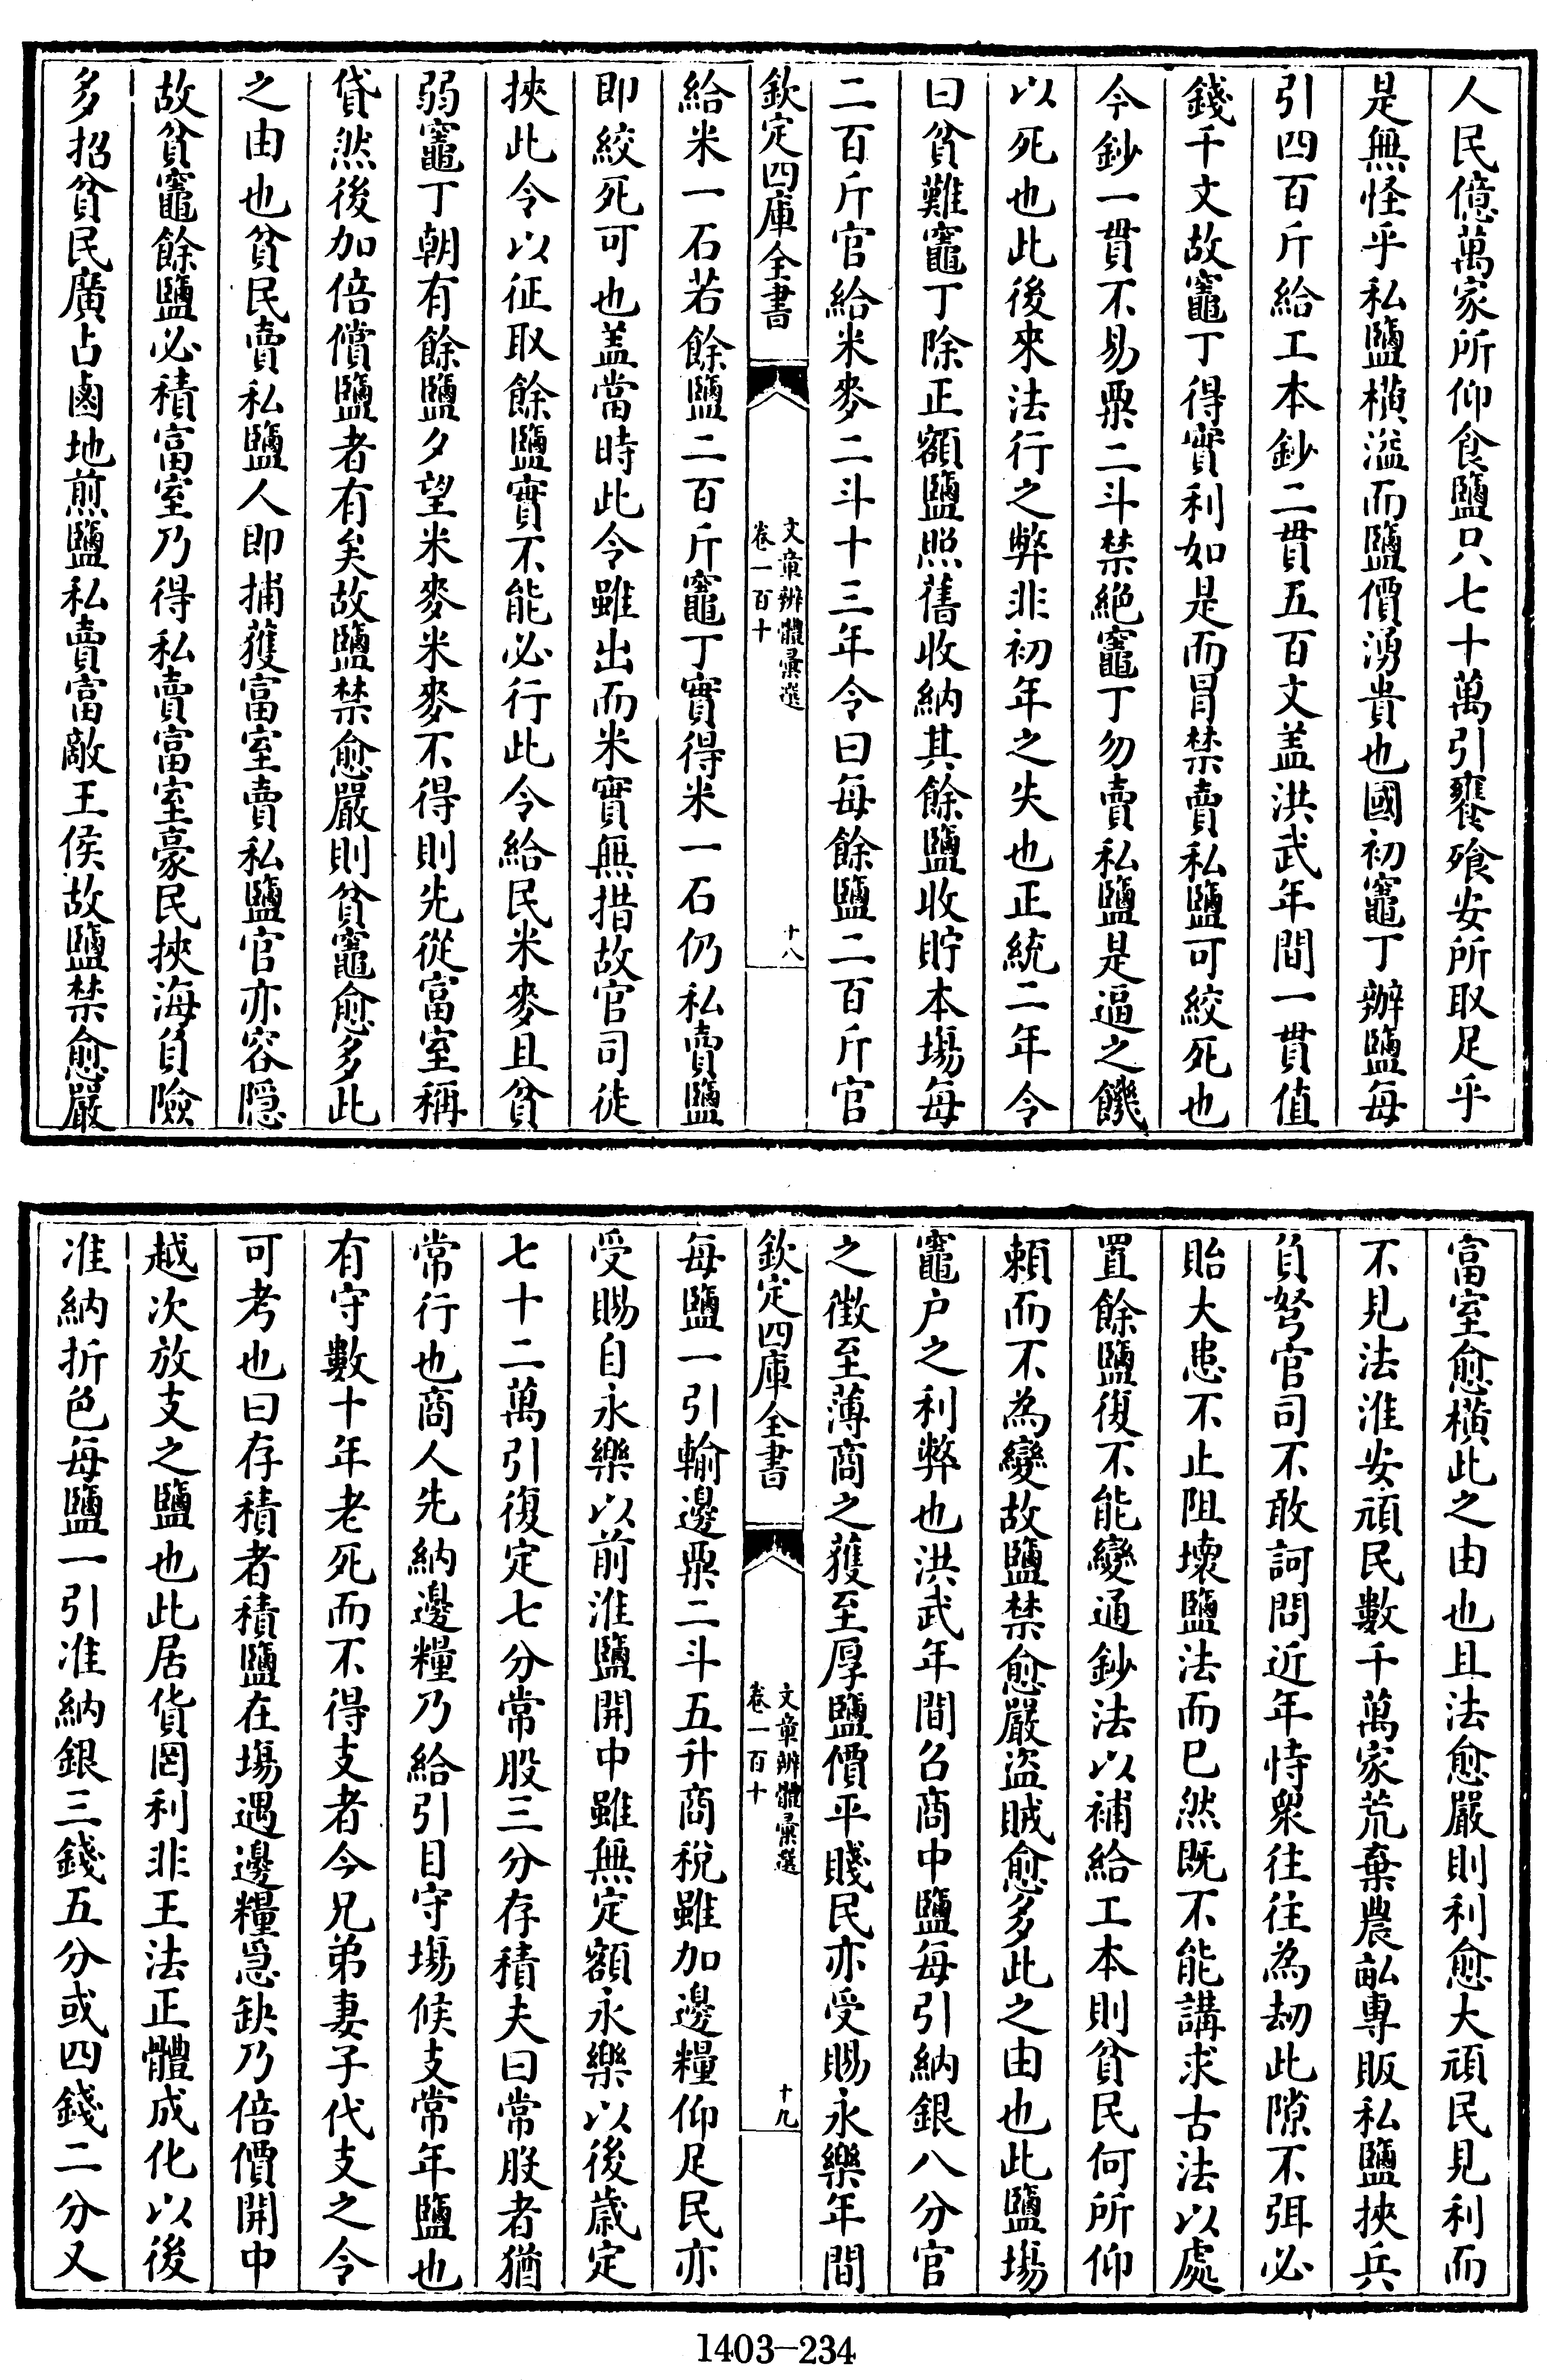 人民億萬家所仰食鹽只七十萬引饔飱安所取足乎
是無怪乎私鹽横溢而鹽價湧貴也國初竈丁辦鹽每
引四百斤給工本鈔二貫五百文盖洪武年間一貫值
錢千文故竈丁得實利如是而冒禁賣私鹽可絞死也
今鈔一貫不易粟二斗禁絶竈丁勿賣私鹽是逼之饑
以死也此後來法行之弊非初年之失也正統二年令
曰貧難竈丁除正額鹽照舊收納其餘鹽收貯本塲每
二百斤官給米麥二斗十三年令曰每餘鹽二百斤官
欽定四庫全書
文章辨體彙選
卷一百十
十八
給米一石若餘鹽二百斤竈丁實得米一石仍私賣鹽
即絞死可也盖當時此令雖出而米實無措故官司徒
挾此令以征取餘鹽實不能必行此令給民米麥且貧
弱竈丁朝有餘鹽夕望米麥米麥不得則先從富室稱
貸然後加倍償鹽者有矣故鹽禁愈嚴則貧竈愈多此
之由也貧民賣私鹽人即捕獲富室賣私鹽官亦容隱
故貧竈餘鹽必積富室乃得私賣富室豪民挾海負險
多招貧民廣占鹵地煎鹽私賣富敵王侯故鹽禁愈嚴
富室愈横此之由也且法愈嚴則利愈大頑民見利而
不見法淮安頑民數千萬家荒棄農畝專販私鹽挾兵
負弩官司不敢訶問近年恃衆往往為刼此隙不弭必
貽大患不止阻壞鹽法而已然既不能講求古法以處
置餘鹽復不能變通鈔法以補給工本則貧民何所仰
頼而不為變故鹽禁愈嚴盗賊愈多此之由也此鹽塲
竈户之利弊也洪武年間召商中鹽每引納銀八分官
之徵至薄商之獲至厚鹽價平賤民亦受賜永樂年間
欽定四庫全書
文章辨體彙選
卷一百十
十九
每鹽一引輸邊粟二斗五升商税雖加邊糧仰足民亦
受賜自永樂以前淮鹽開中雖無定額永樂以後歲定
七十二萬引復定七分常股三分存積夫曰常股者猶
常行也商人先納邊糧乃給引目守塲候支常年鹽也
有守數十年老死而不得支者今兄弟妻子代支之令
可考也曰存積者積鹽在塲遇邊糧急缺乃倍價開中
越次放支之鹽也此居貨罔利非王法正體成化以後
准納折色每鹽一引准納銀三錢五分或四錢二分又
1403—234